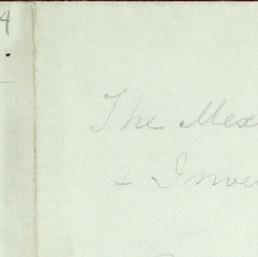 4
The Mex
+ Inve